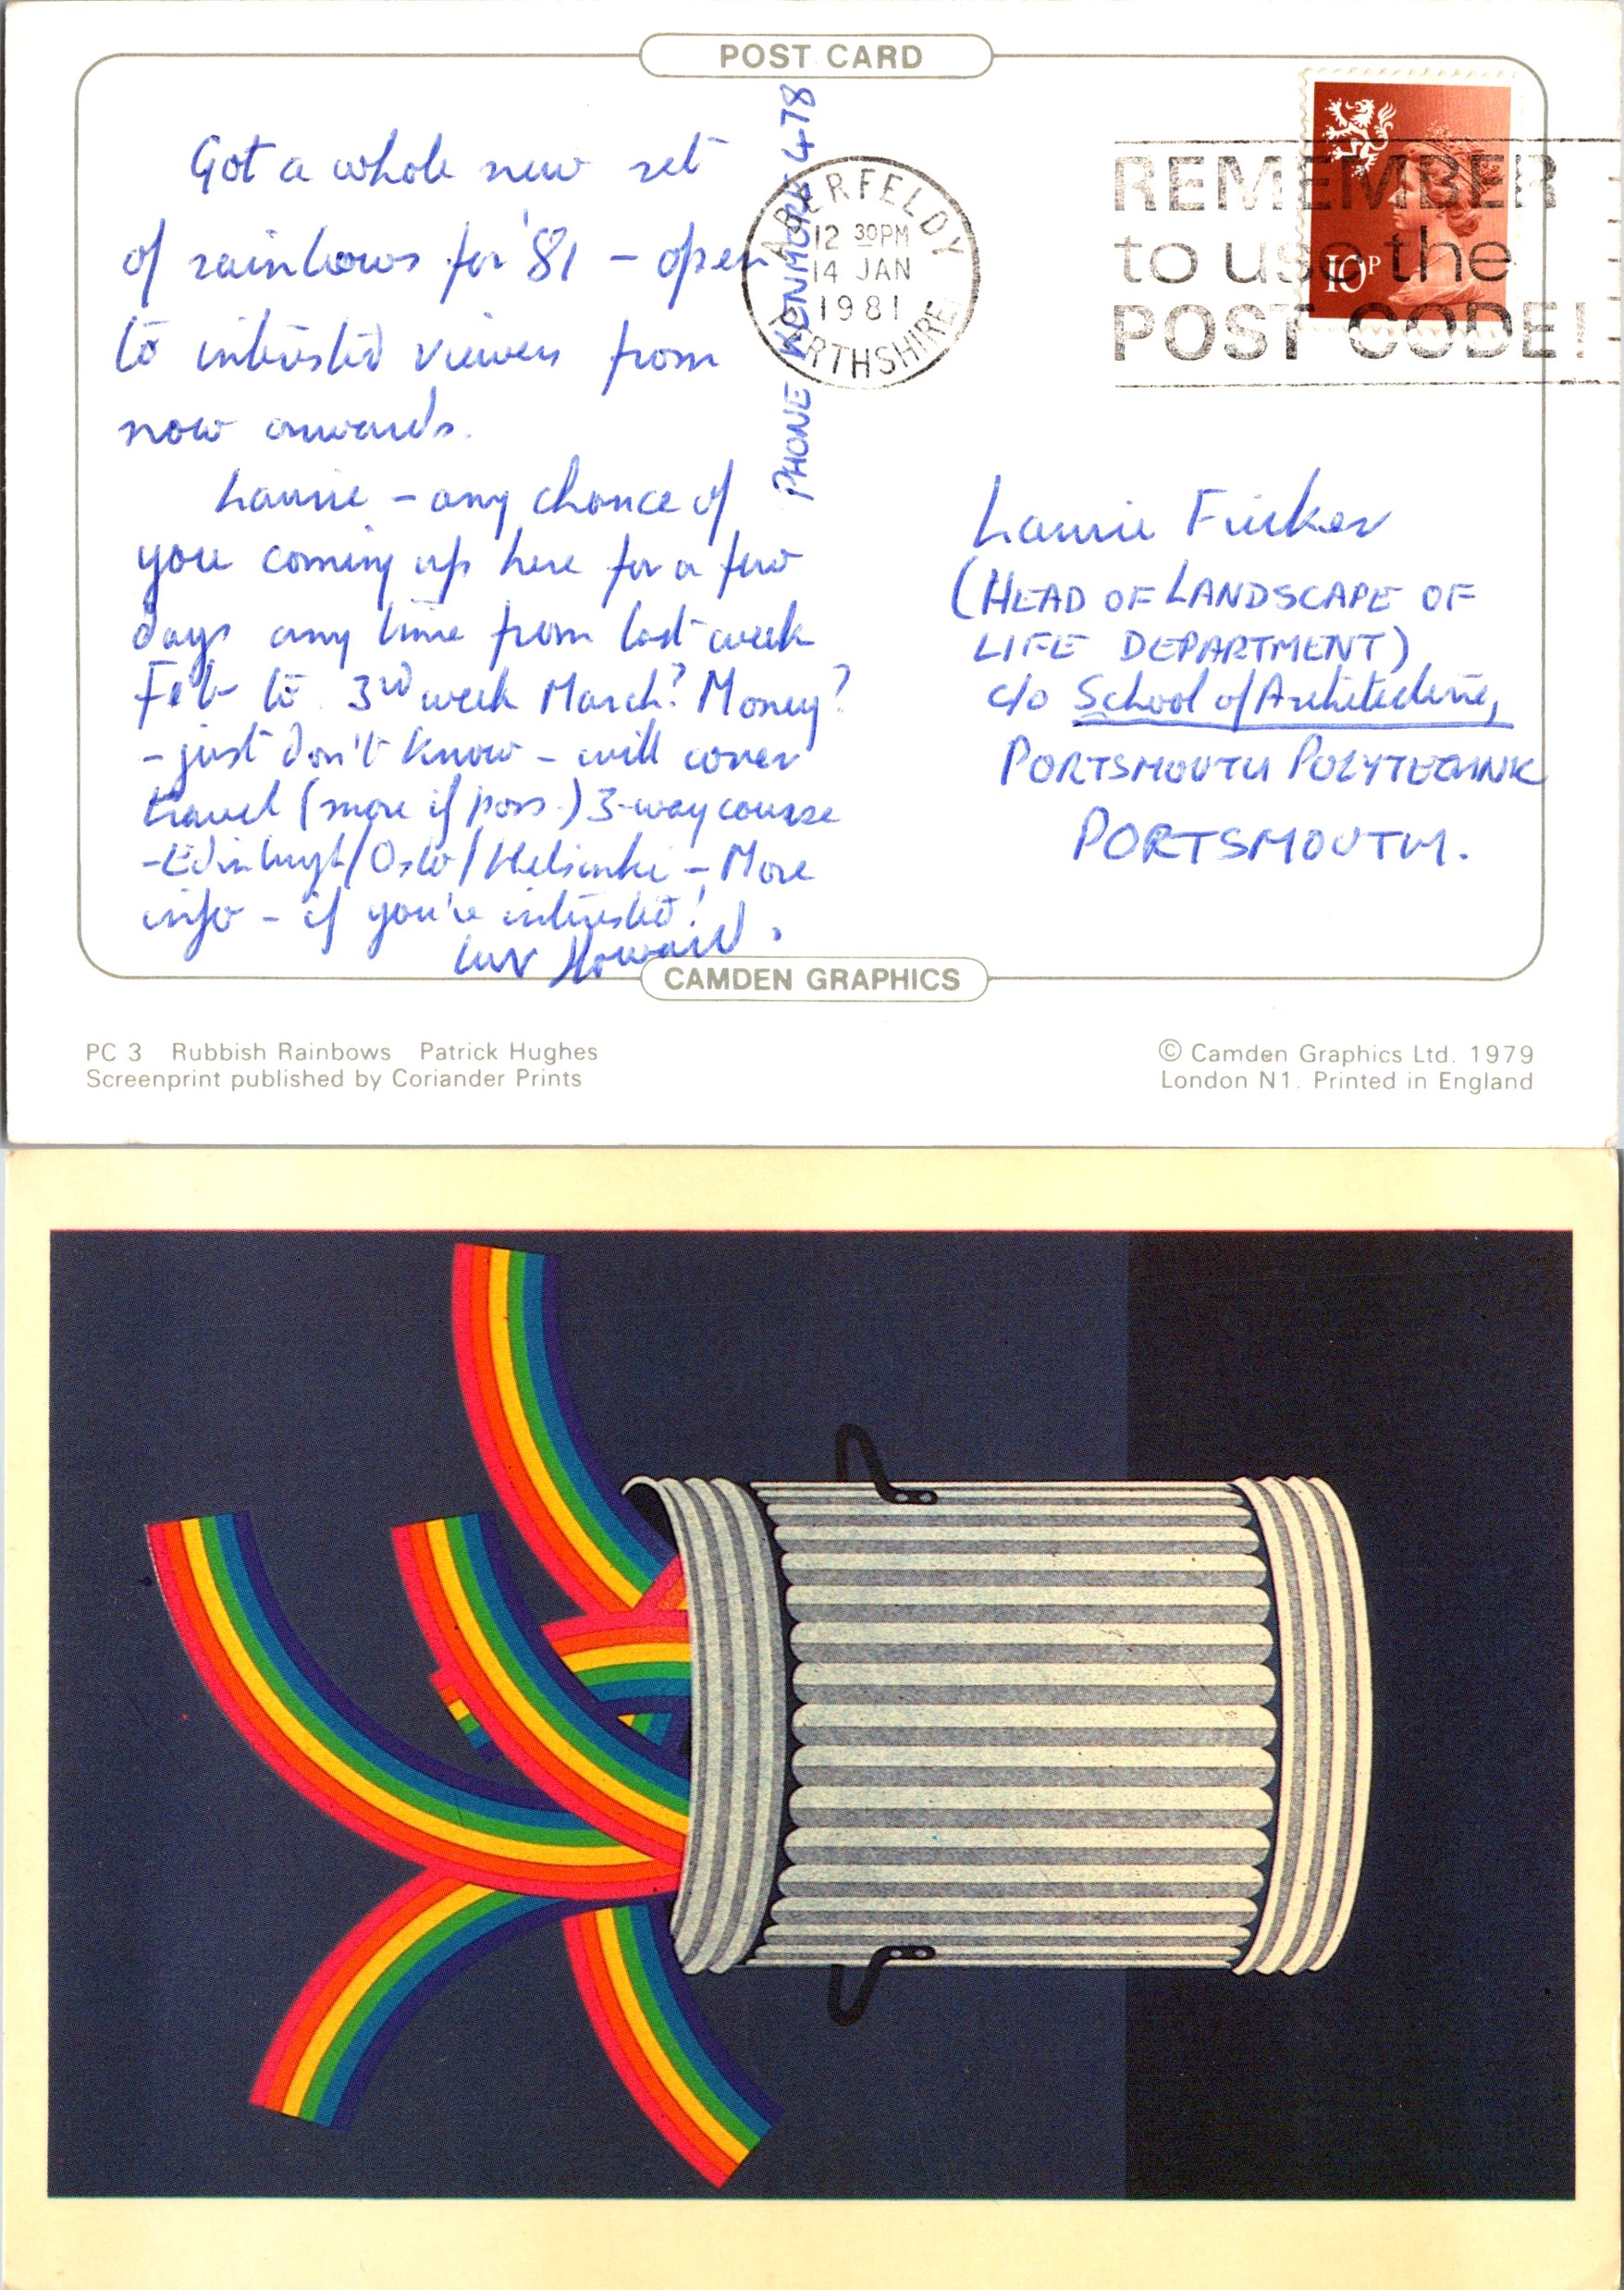 POST CARD
Got a whole new set
of rainbows for '81 – open
to interested viewers from
now onwards.
Laurie – any chance of
you coming up here for a few
days any time from last week
Feb to 3rd week March? Money?
– just don't know – will cover
travel (more if poss.) 3-way course
– Edinburgh/Oslo/Helsinki – More
info – if you're interested!
luv Howard.
PHONE KENMORE 478
ABERFELDY
12 30PM
14 JAN
1981
PERTHSHIRE
REMEMBER
to use the
POST CODE!
10P
Laurie Fricker
(HEAD OF LANDSCAPE OF
LIFE DEPARTMENT)
c/o School of Architecture,
PORTSMOUTH POLYTECHNIC
PORTSMOUTH.
CAMDEN GRAPHICS
PC 3 Rubbish Rainbows Patrick Hughes
Screenprint published by Coriander Prints
© Camden Graphics Ltd. 1979
London N1. Printed in England